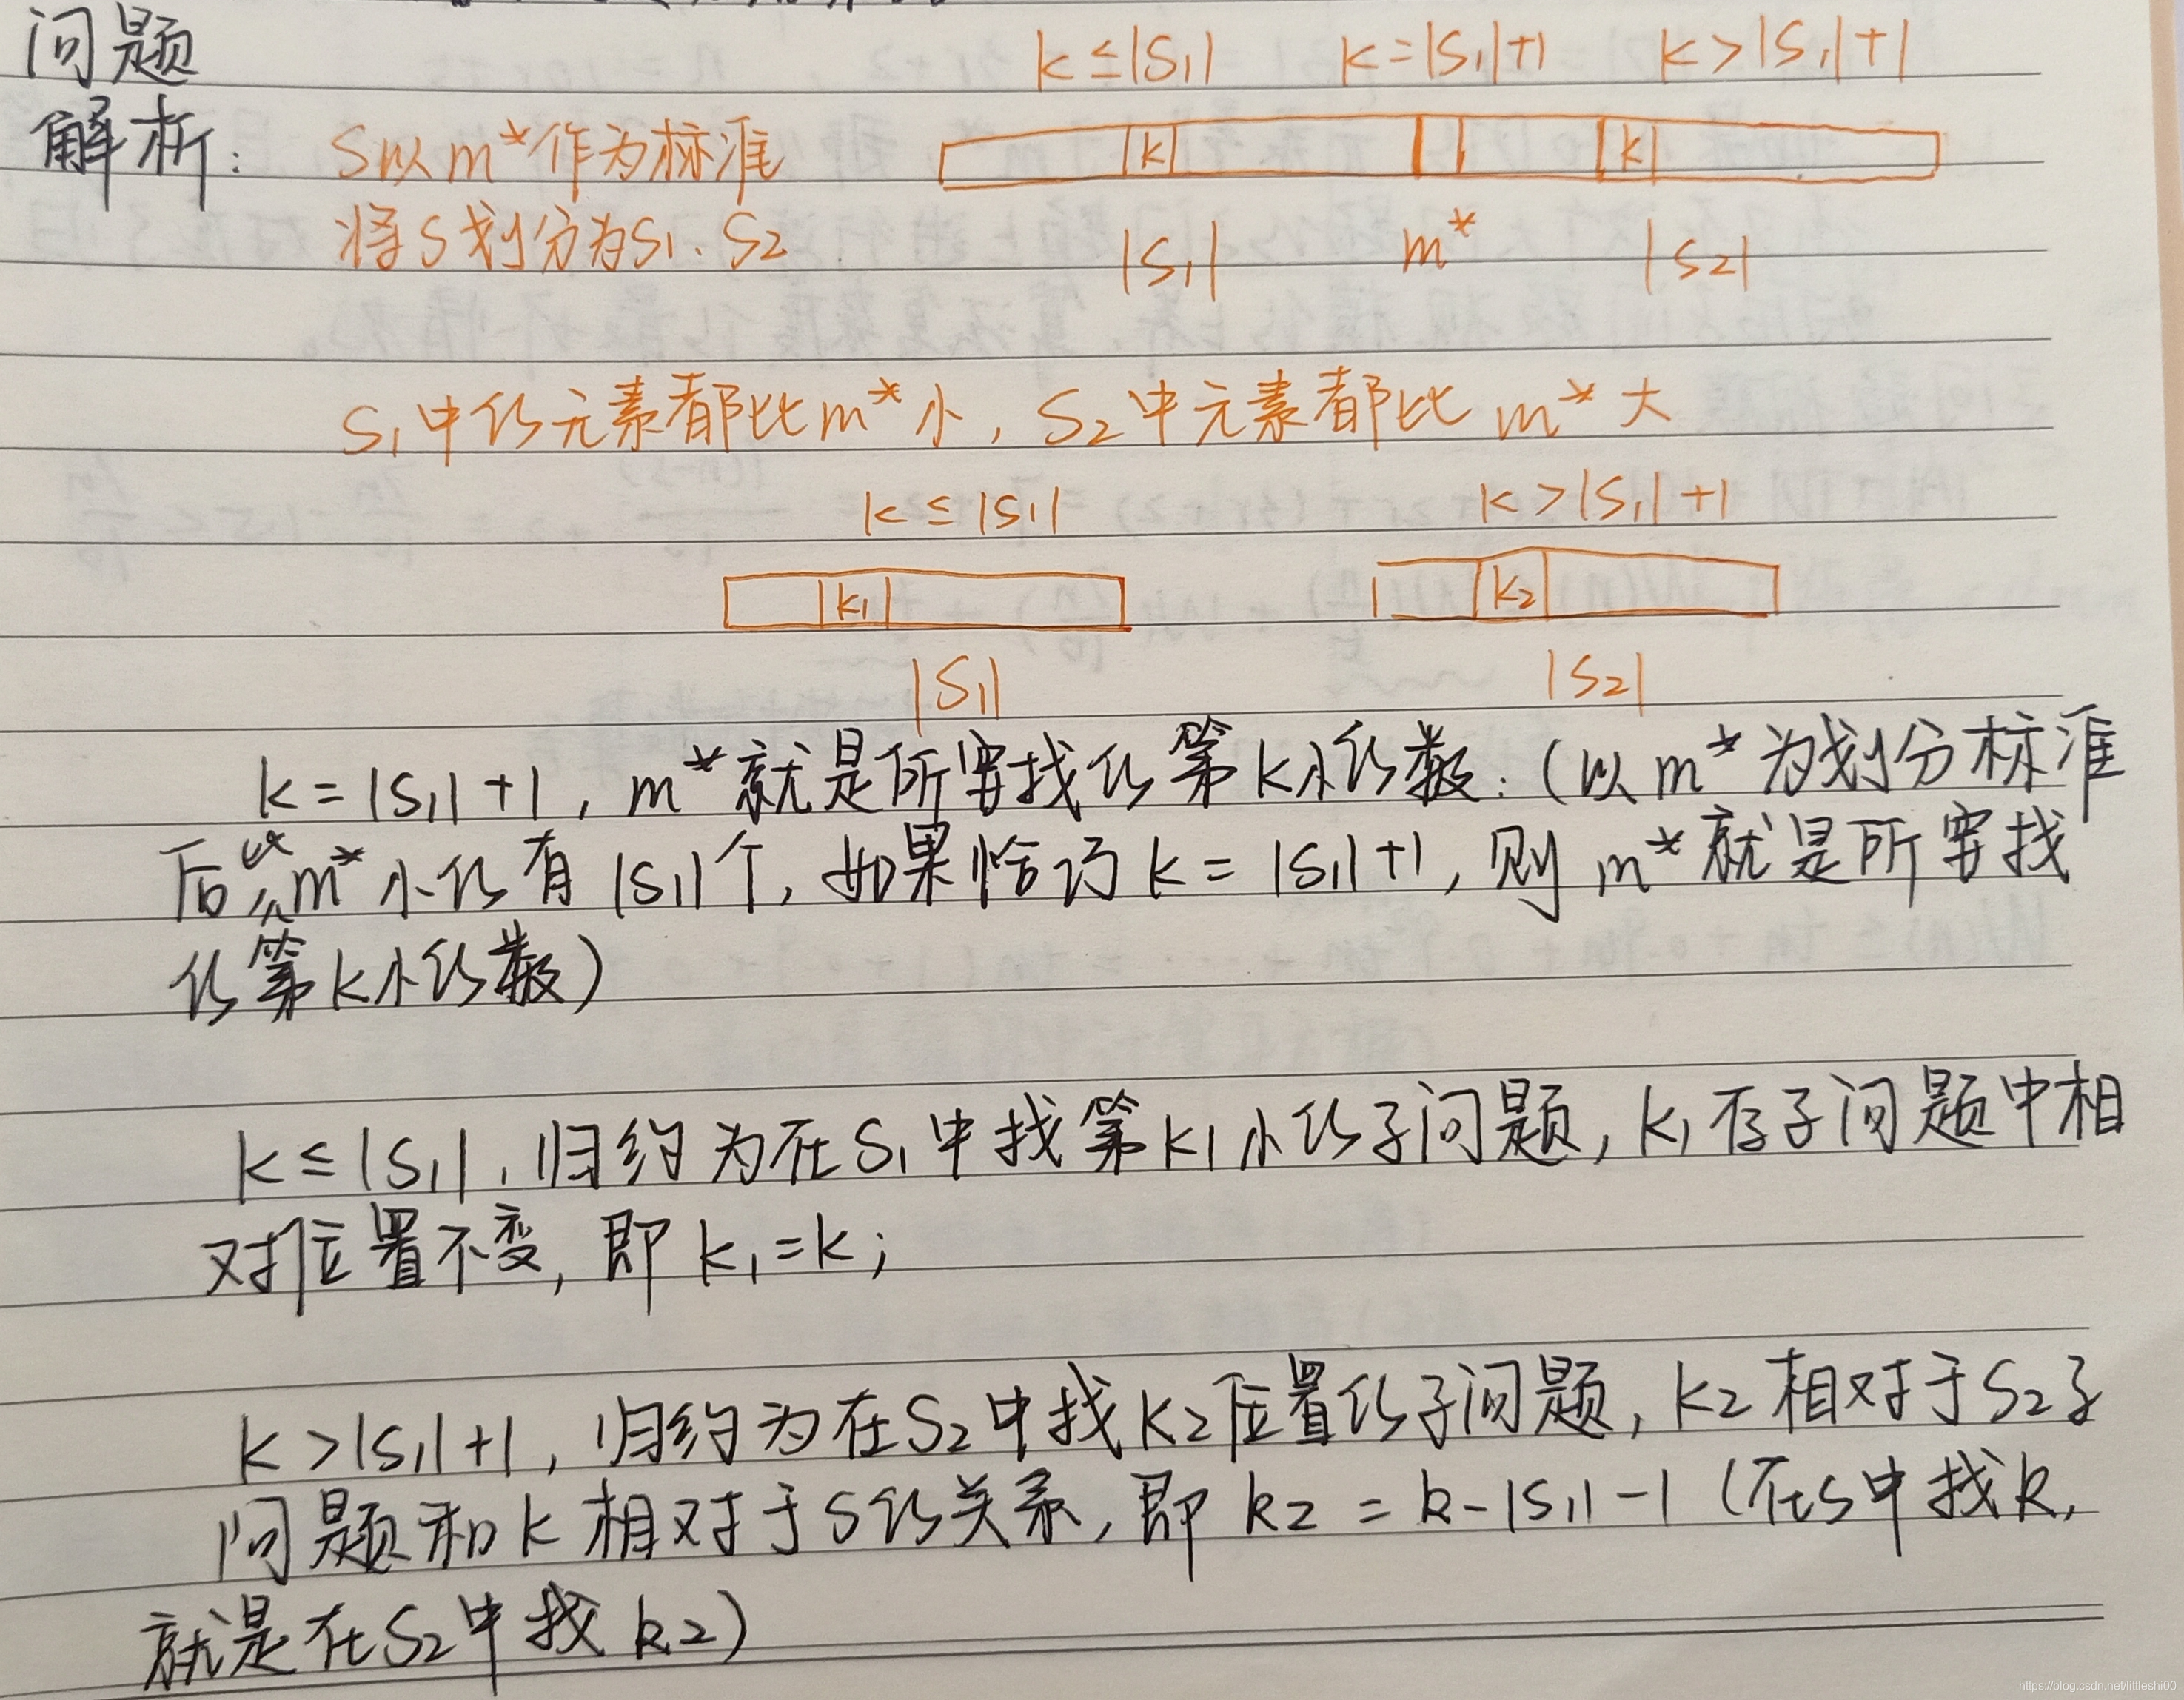 问题
解析:
k≤|S1| k=|S1|+1 k>|S1|+1
S以m*作为标准
k k
将S划分为S1、S2
|S1| m* |S2|
S1中的元素都比m*小, S2中元素都比m*大
k≤|S1| k>|S1|+1
k1 k2
|S1| |S2|
k=|S1|+1, m*就是所要找的第k小的数: (以m*为划分标准
后,比m*小的有|S1|个, 如果恰巧k=|S1|+1, 则m*就是所要找
的第k小的数)
k≤|S1|, 归约为在S1中找第k1小的子问题, k1在子问题中相
对位置不变, 即k1=k;
k>|S1|+1, 归约为在S2中找k2位置的子问题, k2相对于S2子
问题和k相对于S的关系, 即k2=k-|S1|-1 (在S中找k,
就是在S2中找k2)
https://blog.csdn.net/littleshi00